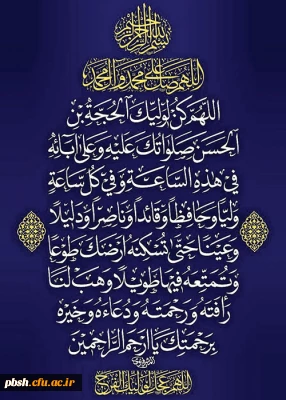 بسم الله الرحمن الرحیم
اللهم صل علی محمد وآل محمد
اللهُمَّ كُنْ لِوَلِيِّكَ الحُجَّةِ بْنِ
الحَسَنِ صَلَواتُكَ عَلَيْهِ وَعَلىٰ آبائِهِ
في هٰذِهِ السّاعَةِ وَفي كُلِّ ساعَةٍ
وَلِيّاً وَحافِظاً وَقائِداً وَناصِراً وَدَليلاً
وَعَيْناً حَتّىٰ تُسْكِنَهُ أَرْضَكَ طَوْعاً
وَتُمَتِّعَهُ فيها طَويلاً وَهَبْ لَنا
رَأْفَتَهُ وَرَحْمَتَهُ وَدُعاءَهُ وَخَيْرَهُ
بِرَحْمَتِكَ يا أَرْحَمَ الرّاحِمينَ
اللهم عجل لولیک الفرج
pbsh.cfu.ac.ir